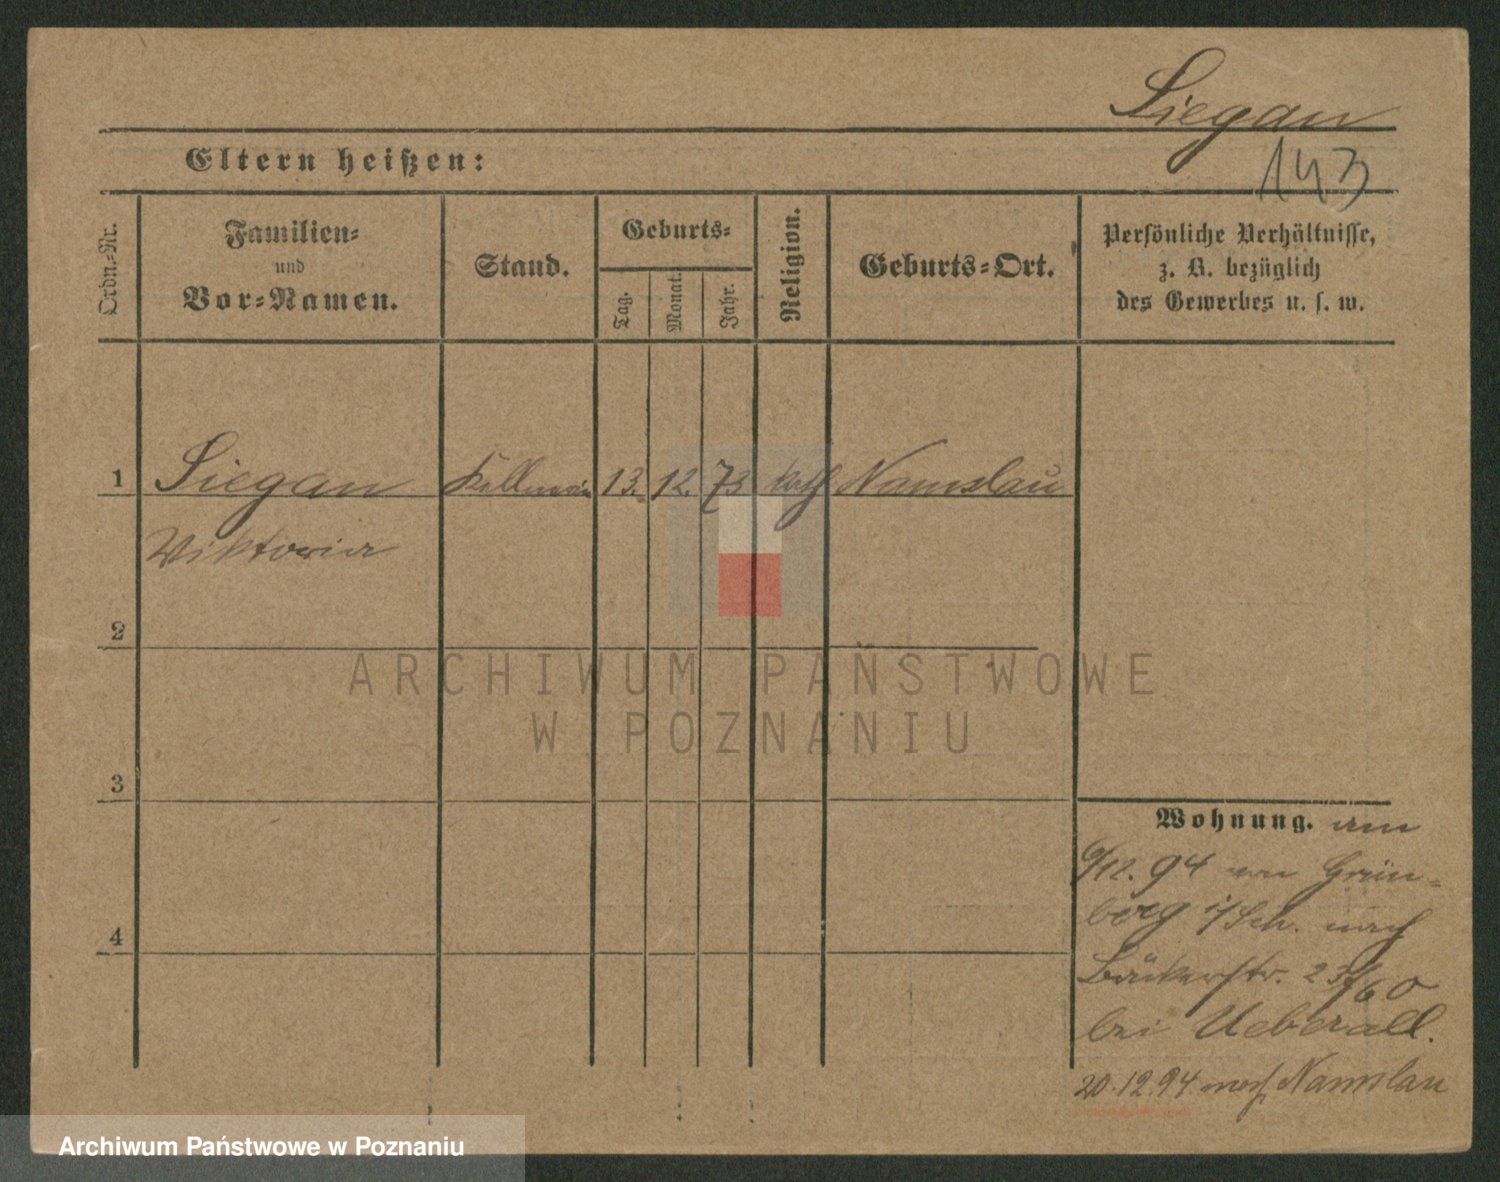 Siegan
143
Eltern heißen:
Ordn.-Nr.
Familien-
und
Vor-Namen.
Stand.
Geburts-
Tag.
Monat.
Jahr.
Religion.
Geburts-Ort.
Persönliche Verhältnisse,
z. B. bezüglich
des Gewerbes u. s. w.
1 Siegan Kellnerin 13. 12. 73 kath Namslau
Viktoria
2
3
4
Wohnung. am
6/12. 94 von Grün-
berg i/Sch. nach
Bäckerstr. 23/60
bei Ueberall.
20.12.94 nach Namslau
ARCHIWUM PAŃSTWOWE
W POZNANIU
Archiwum Państwowe w Poznaniu